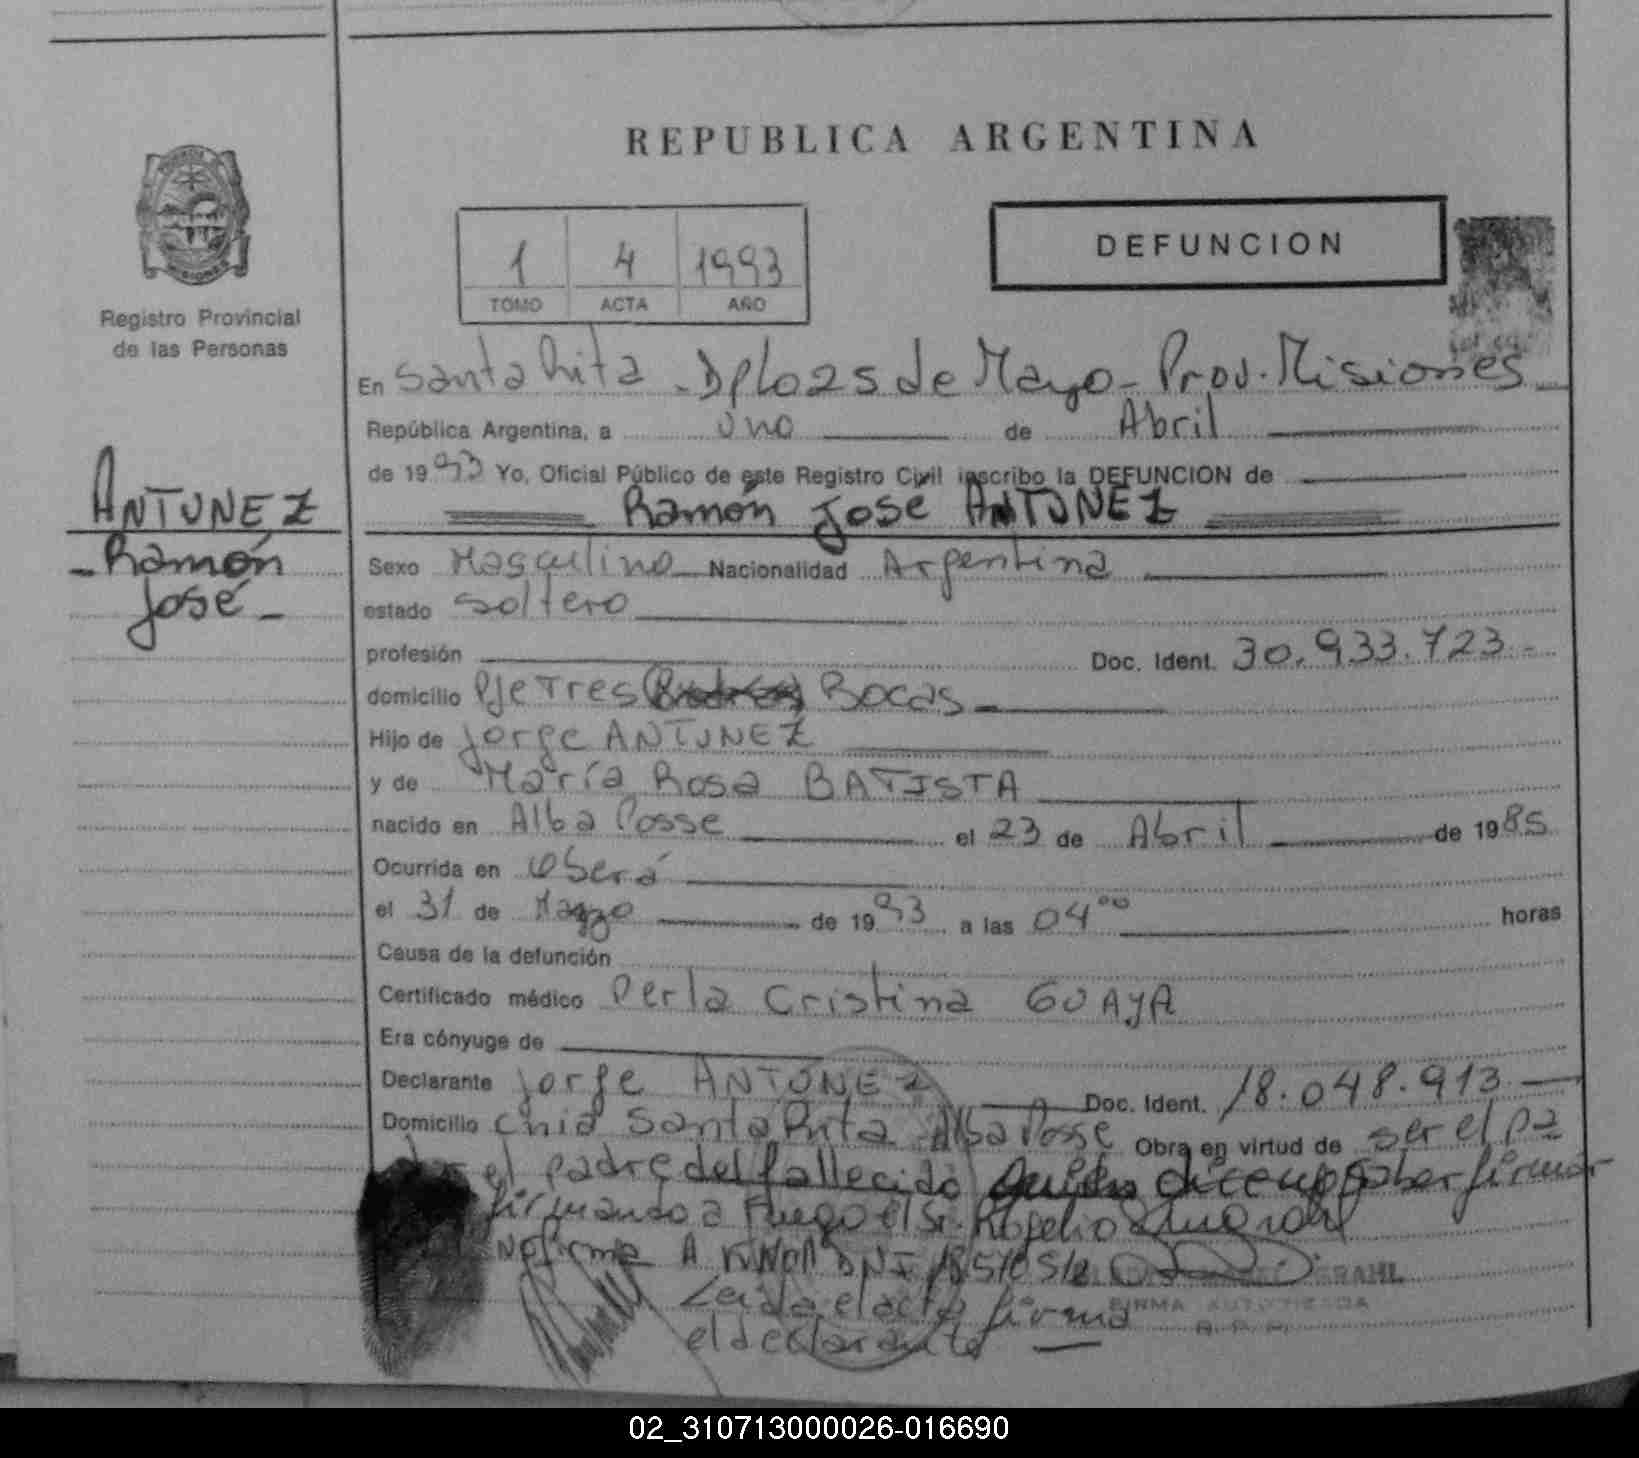 REPUBLICA ARGENTINA
DEFUNCION
1 4 1993
TOMO ACTA AÑO
Registro Provincial
de las Personas
En Santa Rita - Dpto 25 de Mayo - Prov. Misiones
República Argentina, a uno de Abril
de 1993 Yo, Oficial Público de este Registro Civil inscribo la DEFUNCION de
Ramón José ANTUNEZ
ANTUNEZ
- Ramón
José -
Sexo Masculino Nacionalidad Argentina
estado soltero
profesión Doc. Ident. 30.933.723 -
domicilio Pje Tres Bocas
Hijo de Jorge ANTUNEZ
y de María Rosa BATISTA
nacido en Alba Posse el 23 de Abril de 1985
Ocurrida en Oberá
el 31 de Marzo de 1993 a las 04⁰⁰ horas
Causa de la defunción
Certificado médico Perla Cristina GUAYA
Era cónyuge de
Declarante Jorge ANTUNEZ Doc. Ident. 18.048.913
Domicilio Cnia Santa Rita Alba Posse Obra en virtud de ser el pa
el padre del fallecido quien dice no saber firmar
firmando a ruego el Sr. Rogelio
No firma A DNI
Leida el acta firma
FIRMA AUTORIZADA
el declarante
02_310713000026-016690